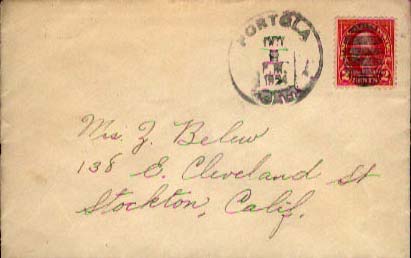 PORTOLA
CALIF.
2 CENTS 2
Mrs. Z. Belew
138 E. Cleveland St
Stockton, Calif.